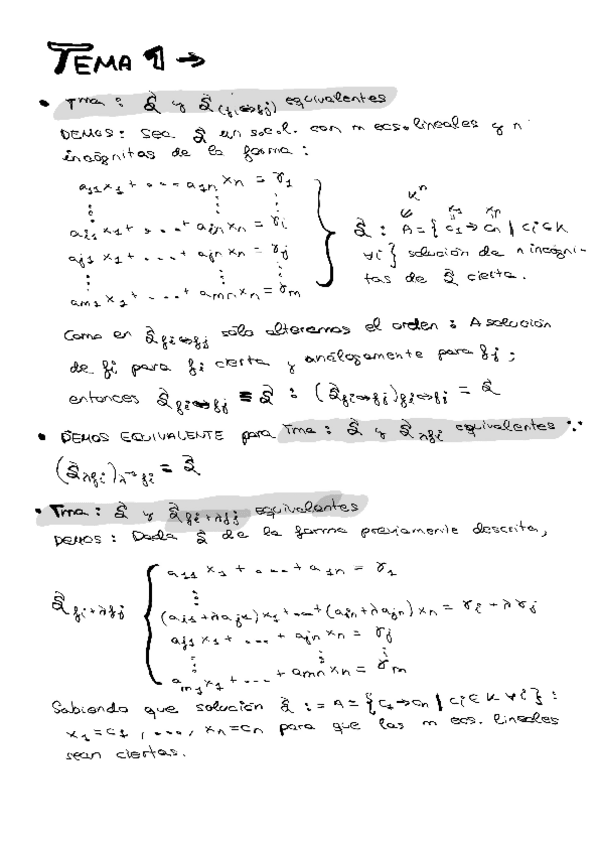 TEMA 1 →
• Tma : S⃗ y S⃗(fi↔fj) equivalentes
DEMOS: Sea S⃗ un s.e.l. con m ecs. lineales y n
incógnitas de la forma :
a11x1 + ... a1n xn = γ1
⋮ ⋮ ⋮
ai1x1 + ... + ain xn = γi
aj1 x1 + ... + ajn xn = γj
⋮ ⋮ ⋮
am1 x1 + ... + amn xn = γm
S⃗ : A = { c1 → cn | ci ∈ K
∀i } solución de n incógni-
tas de S⃗ cierta.
Como en S⃗fi↔fj sólo alteramos el orden : A solución
de fi para fi cierta y análogamente para fj ;
entonces S⃗fi↔fj ≡ S⃗ : (S⃗fi↔fj)fi↔fj = S⃗
• DEMOS EQUIVALENTE para Tma : S⃗ y S⃗λfi equivalentes ∵
(S⃗λfi)λ⁻¹fi = S⃗
• Tma : S⃗ y S⃗fi+λfj equivalentes
DEMOS : Dada S⃗ de la forma previamente descrita,
S⃗fi+λfj
a11 x1 + ... + a1n = γ1
⋮
(ai1+λaj1)x1 + ... + (ain+λajn) xn = γi + λγj
aj1 x1 + ... + ajn xn = γj
⋮ ⋮ ⋮
am1x1 + ... + amn xn = γm
Sabiendo que solución S⃗ := A = { c1→cn | ci ∈ K ∀i } :
x1 = c1 , ..., xn = cn para que las m ecs. lineales
sean ciertas.